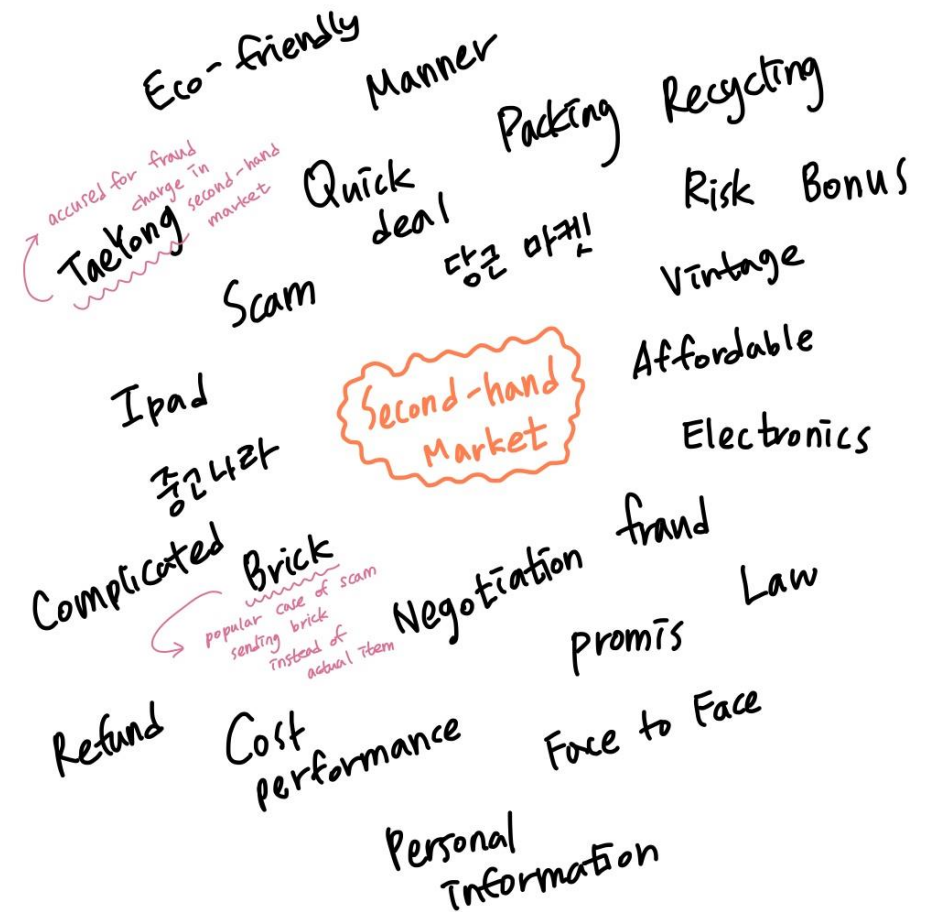 Eco-friendly
Manner
Packing
Recycling
accused for fraud
charge in
second-hand
market
TaeYong
Quick
deal
Risk
Bonus
당근 마켓
Vintage
Scam
Affordable
Second-hand
Market
Ipad
Electronics
중고나라
fraud
Complicated
Brick
popular case of scam
sending brick
instead of
actual item
Negotiation
Law
promis
Refund
Cost
performance
Face to Face
Personal
information